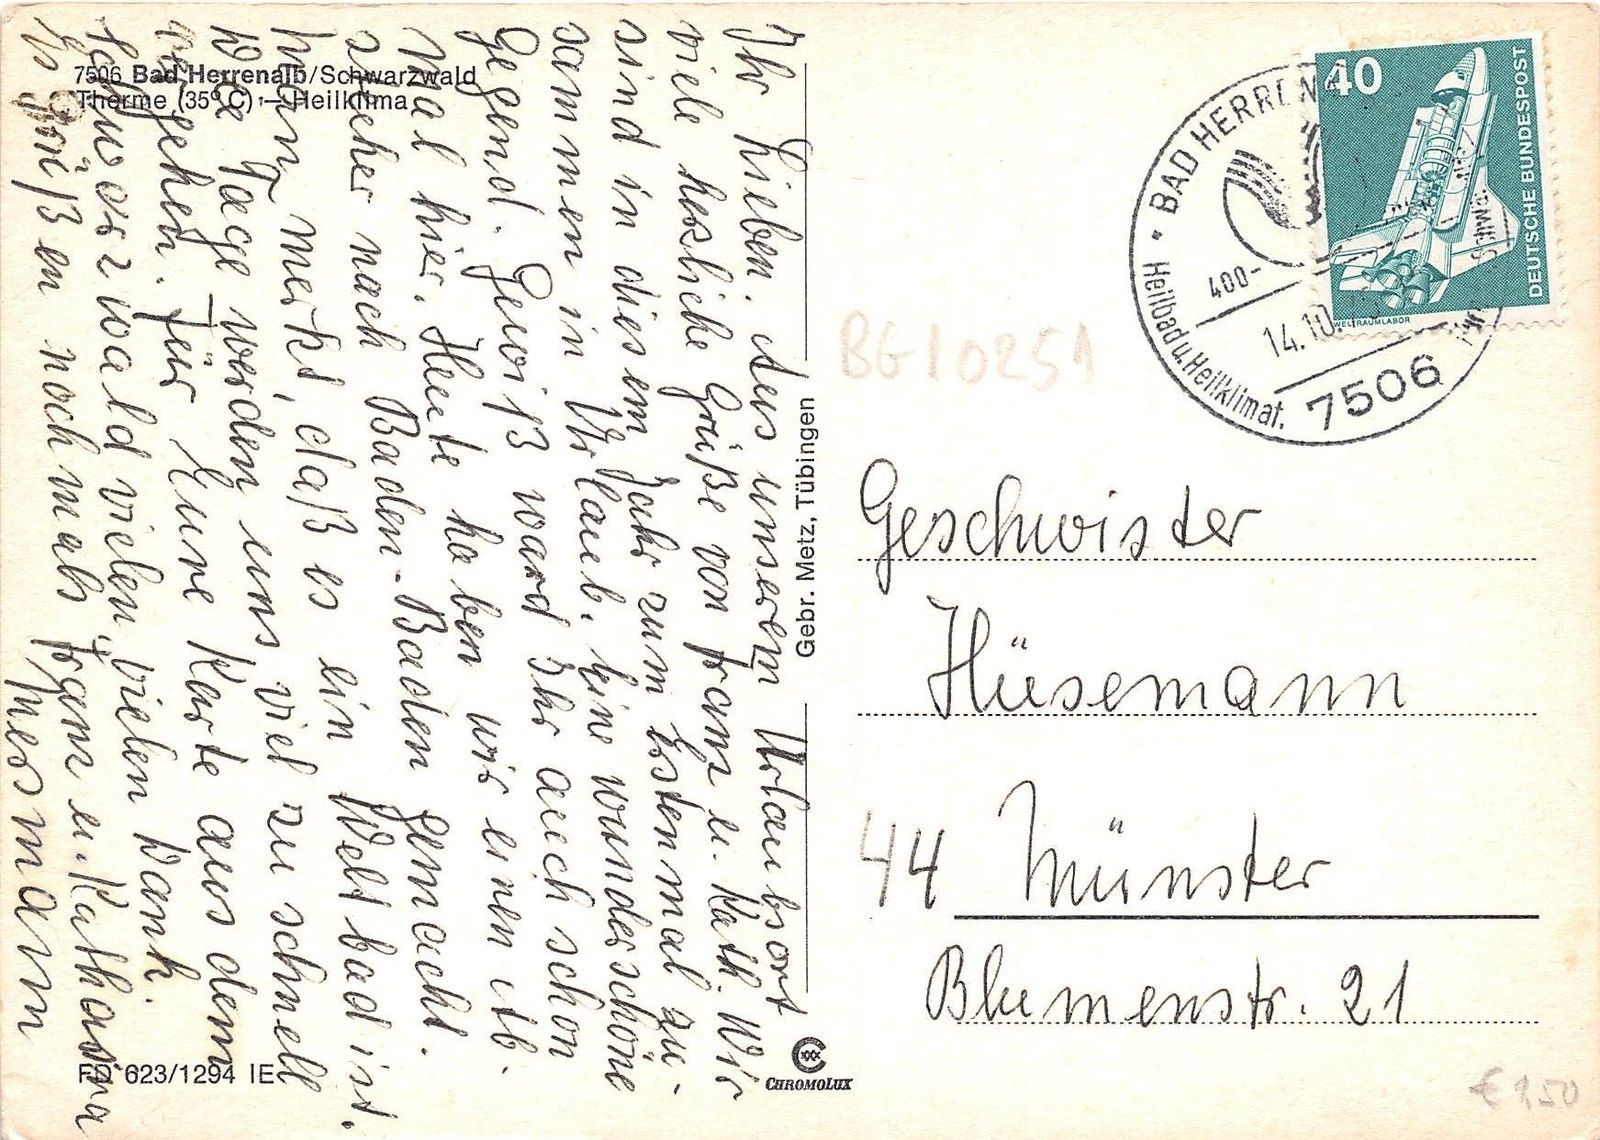 7506 Bad Herrenalb/Schwarzwald
Therme (35° C) — Heilklima
Ihr Lieben. Aus unserem Urlaubsort
viele herzliche Grüße von Franz u. Kath. Wir
sind in diesem Jahr zum Erstenmal zu-
sammen in Urlaub. Eine wunderschöne
Gegend. Gewiß ward Ihr auch schon
mal hier. Heute haben wir einen Ab-
stecher nach Baden-Baden gemacht.
Man merkt, daß es ein Weltbad ist.
Die Tage werden uns viel zu schnell
vergehen. Für Eure Karte aus dem
Schwarzwald vielen, vielen Dank.
Es grüßen nochmals Franz u. Katharina
Mersmann
FD 623/1294 IE
Gebr. Metz, Tübingen
CHROMOLUX
BAD HERRENA
400-
14.10.
7506
Heilbad u. Heilklimat.
40
DEUTSCHE BUNDESPOST
WELTRAUMLABOR
BG10251
Geschwister
Hüsemann
44 Münster
Blumenstr. 21
€ 1,50